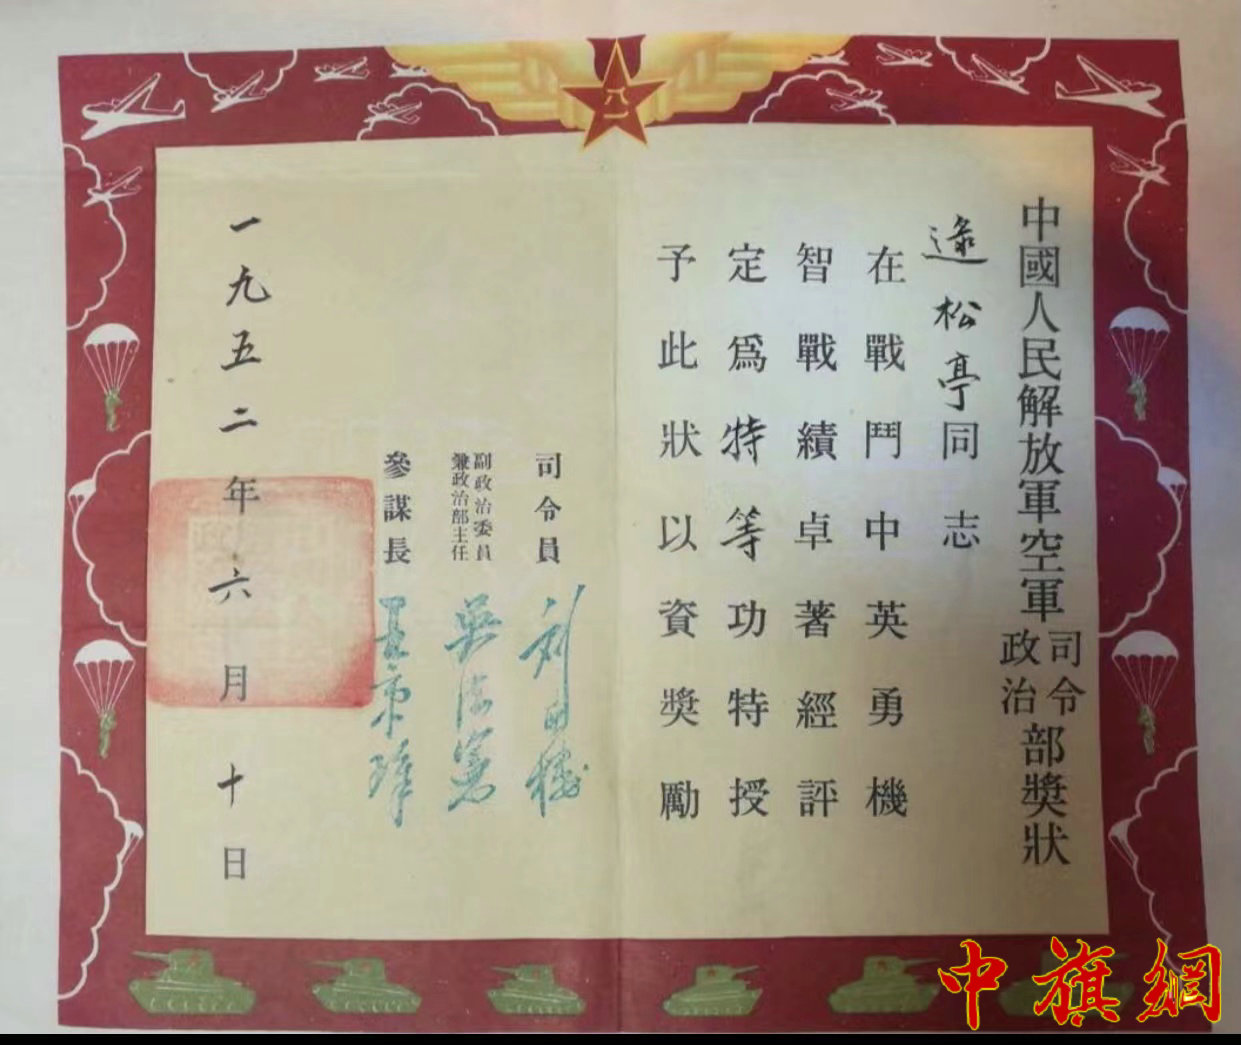 八一
中國人民解放軍空軍司令政治部獎狀
逯松亭同志
在戰鬥中英勇機
智戰績卓著經評
定為特等功特授
予此狀以資獎勵
司令員 刘亞楼
副政治委員
兼政治部主任 吳法憲
參謀長 王秉璋
一九五二年六月十日
中旗網